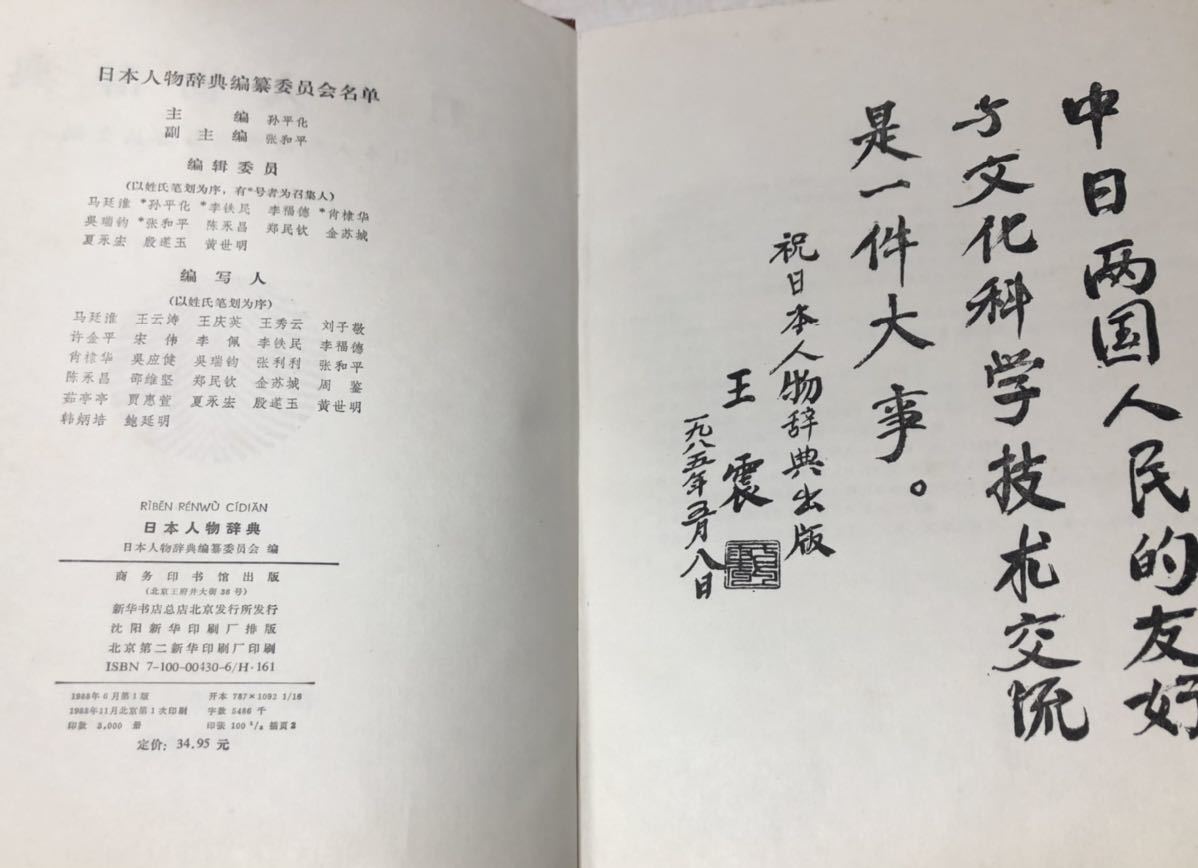 日本人物辞典编纂委员会名单
主编 孙平化
副主编 张和平
编辑委员
(以姓氏笔划为序，有*号者为召集人)
马廷淮 *孙平化 *李铁民 李福德 *肖棣华
吴瑞钧 *张和平 陈永昌 郑民钦 金苏城
夏永宏 殷蓬玉 黄世明
编写人
(以姓氏笔划为序)
马廷淮 王云涛 王庆英 王秀云 刘子敬
许金平 宋伟 李佩 李铁民 李福德
肖棣华 吴应健 吴瑞钧 张利利 张和平
陈永昌 邵维坚 郑民钦 金苏城 周鉴
茹亭亭 贾惠萱 夏永宏 殷蓬玉 黄世明
韩炳培 鲍延明
RÌBĚN RÉNWÙ CÍDIǍN
日本人物辞典
日本人物辞典编纂委员会 编
商务印书馆出版
(北京王府井大街36号)
新华书店总店北京发行所发行
沈阳新华印刷厂排版
北京第二新华印刷厂印刷
ISBN 7-100-00430-6/H·161
1988年6月第1版 开本 787×1092 1/16
1988年11月北京第1次印刷 字数 5486 千
印数 3,000 册 印张 100 5/8 插页2
定价：34.95 元
中日两国人民的友好
与文化科学技术交流
是一件大事。
祝日本人物辞典出版
王震
一九八五年五月八日